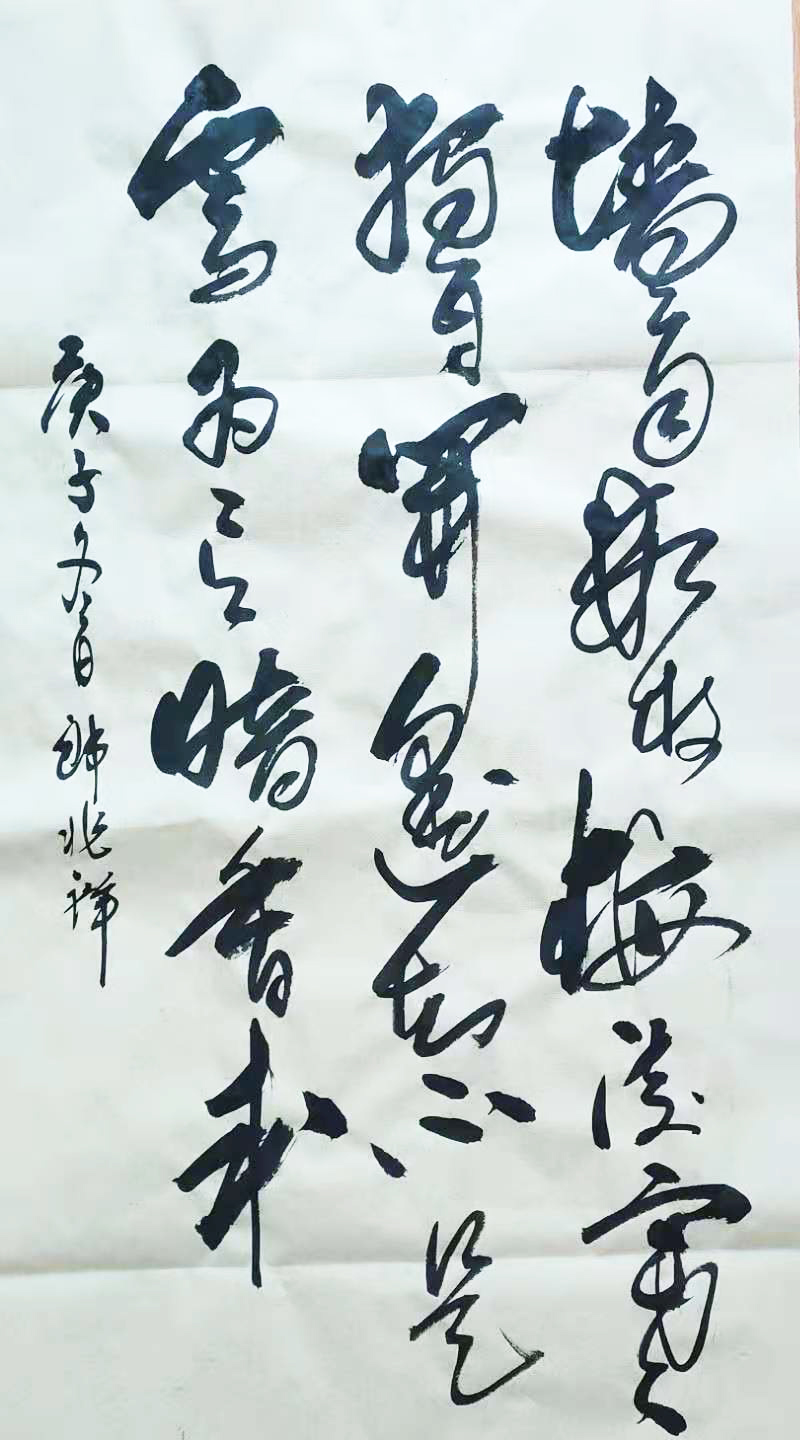 墙角數枝梅凌寒
獨自開遥知不是
雪为有暗香来
庚子冬月 兆祥